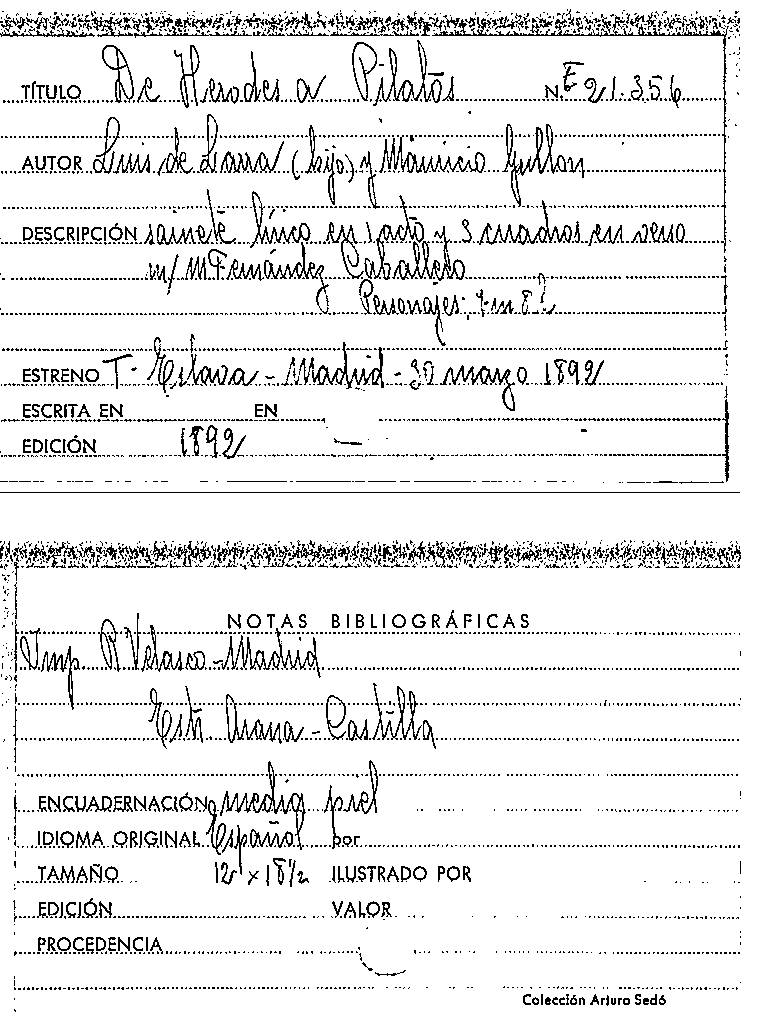 TÍTULO De Herodes a Pilatos N.º E 21.356
AUTOR Luis de Larra (hijo) y Mauricio Gullon
DESCRIPCIÓN sainete lírico en 1 acto y 3 cuadros en verso
m/ M Fernández Caballero
Personajes: 7 m 8 h
ESTRENO T. Eslava - Madrid - 30 marzo 1892
ESCRITA EN EN
EDICIÓN 1892
NOTAS BIBLIOGRÁFICAS
Imp. R Velasco - Madrid
Estr. Arana - Castilla
ENCUADERNACIÓN media piel
IDIOMA ORIGINAL Español por
TAMAÑO 12 x 18½ ILUSTRADO POR
EDICIÓN VALOR
PROCEDENCIA
Colección Arturo Sedó